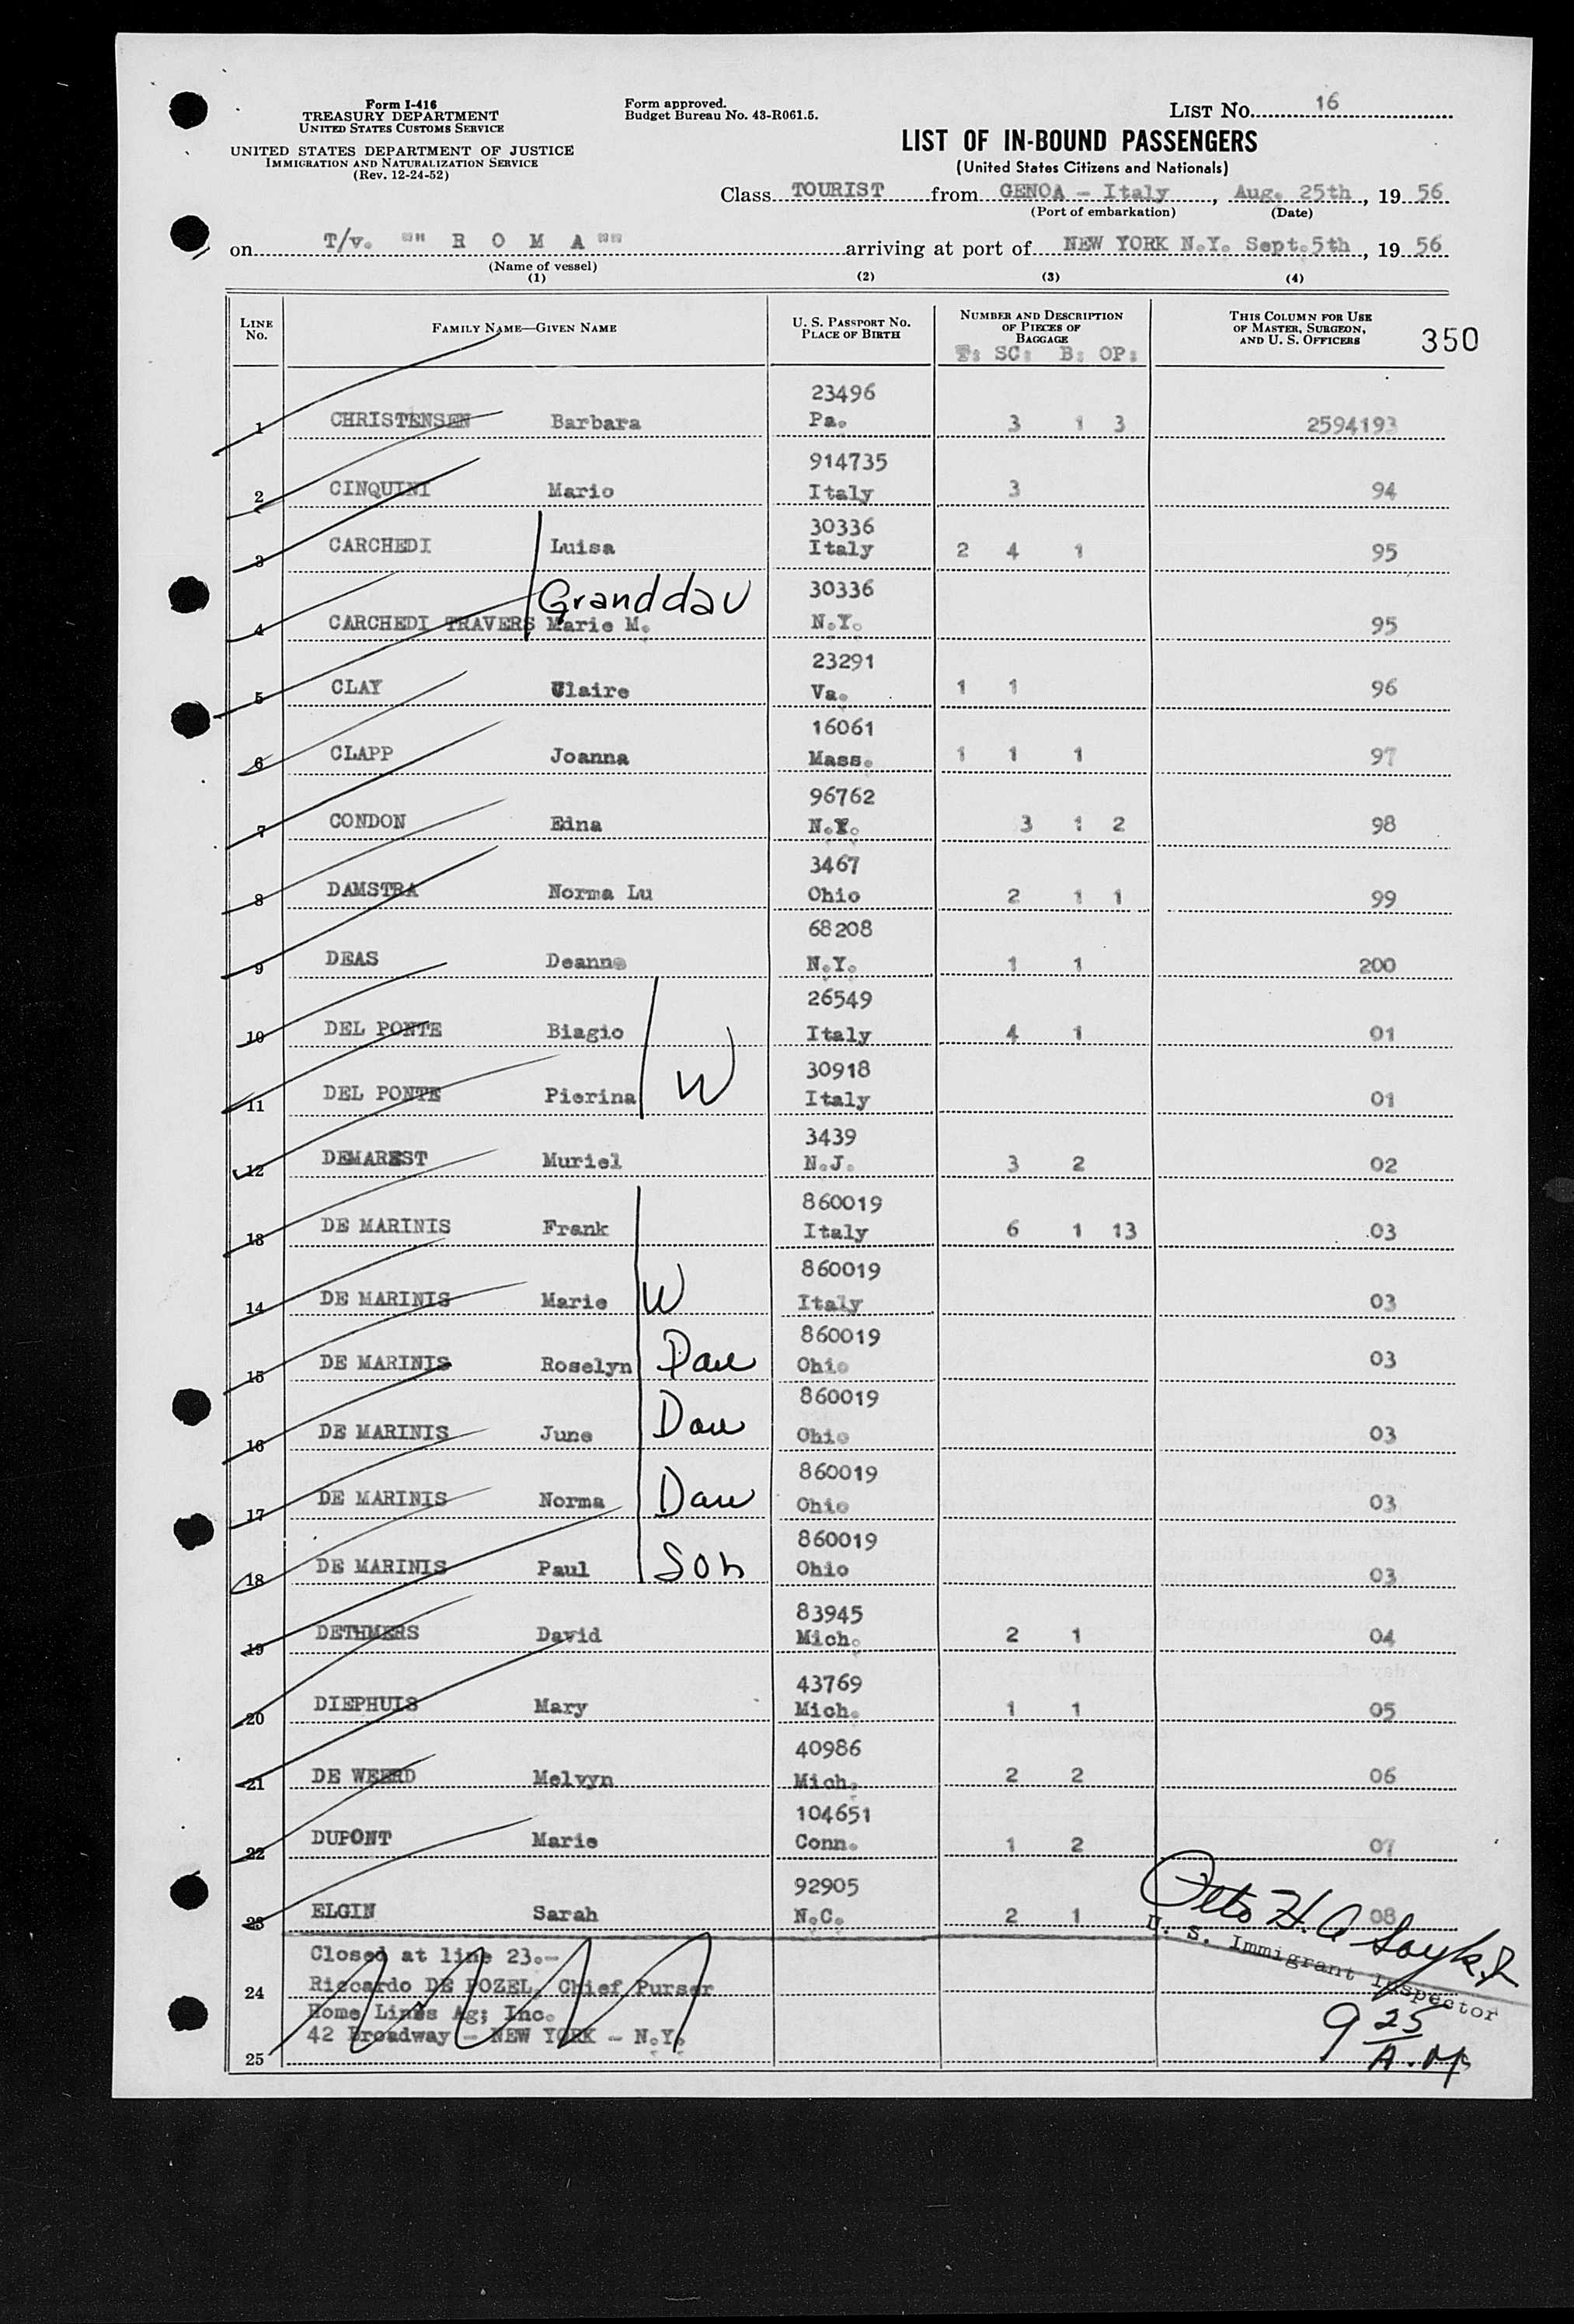 Form I-416
TREASURY DEPARTMENT
UNITED STATES CUSTOMS SERVICE
UNITED STATES DEPARTMENT OF JUSTICE
IMMIGRATION AND NATURALIZATION SERVICE
(Rev. 12-24-52)
Form approved.
Budget Bureau No. 43-R061.5.
LIST No. 16
LIST OF IN-BOUND PASSENGERS
(United States Citizens and Nationals)
Class TOURIST from GENOA - Italy, Aug. 25th, 19 56
(Port of embarkation) (Date)
on T/v. "" R O M A "" arriving at port of NEW YORK N.Y. Sept.5th, 19 56
(Name of vessel)
(1) (2) (3) (4)
LINE No. FAMILY NAME—GIVEN NAME U. S. PASSPORT NO. PLACE OF BIRTH NUMBER AND DESCRIPTION OF PIECES OF BAGGAGE THIS COLUMN FOR USE OF MASTER, SURGEON, AND U. S. OFFICERS 350
T: SC: B: OP:
23496
1 CHRISTENSEN Barbara Pa. 3 1 3 2594193
914735
2 CINQUINI Mario Italy 3 94
30336
3 CARCHEDI Luisa Italy 2 4 1 95
Granddau 30336
4 CARCHEDI TRAVERS Marie M. N.Y. 95
23291
5 CLAY Claire Va. 1 1 96
16061
6 CLAPP Joanna Mass. 1 1 1 97
96762
7 CONDON Edna N.Y. 3 1 2 98
3467
8 DAMSTRA Norma Lu Ohio 2 1 1 99
68208
9 DEAS Deanne N.Y. 1 1 200
26549
10 DEL PONTE Biagio Italy 4 1 01
30918
11 DEL PONTE Pierina W Italy 01
3439
12 DEMAREST Muriel N.J. 3 2 02
860019
13 DE MARINIS Frank Italy 6 1 13 03
860019
14 DE MARINIS Marie W Italy 03
860019
15 DE MARINIS Roselyn Dau Ohio 03
860019
16 DE MARINIS June Dau Ohio 03
860019
17 DE MARINIS Norma Dau Ohio 03
860019
18 DE MARINIS Paul Son Ohio 03
83945
19 DETHMERS David Mich. 2 1 04
43769
20 DIEPHUIS Mary Mich. 1 1 05
40986
21 DE WEERD Melvyn Mich. 2 2 06
104651
22 DUPONT Marie Conn. 1 2 07
92905
23 ELGIN Sarah N.C. 2 1 08
Otto H. A
U. S. Immigrant Inspector
Closed at line 23.-
24 Riccardo DE POZEL, Chief Purser
Home Lines Ag; Inc.
42 Broadway - NEW YORK - N.Y.
25
9 25
A.M.